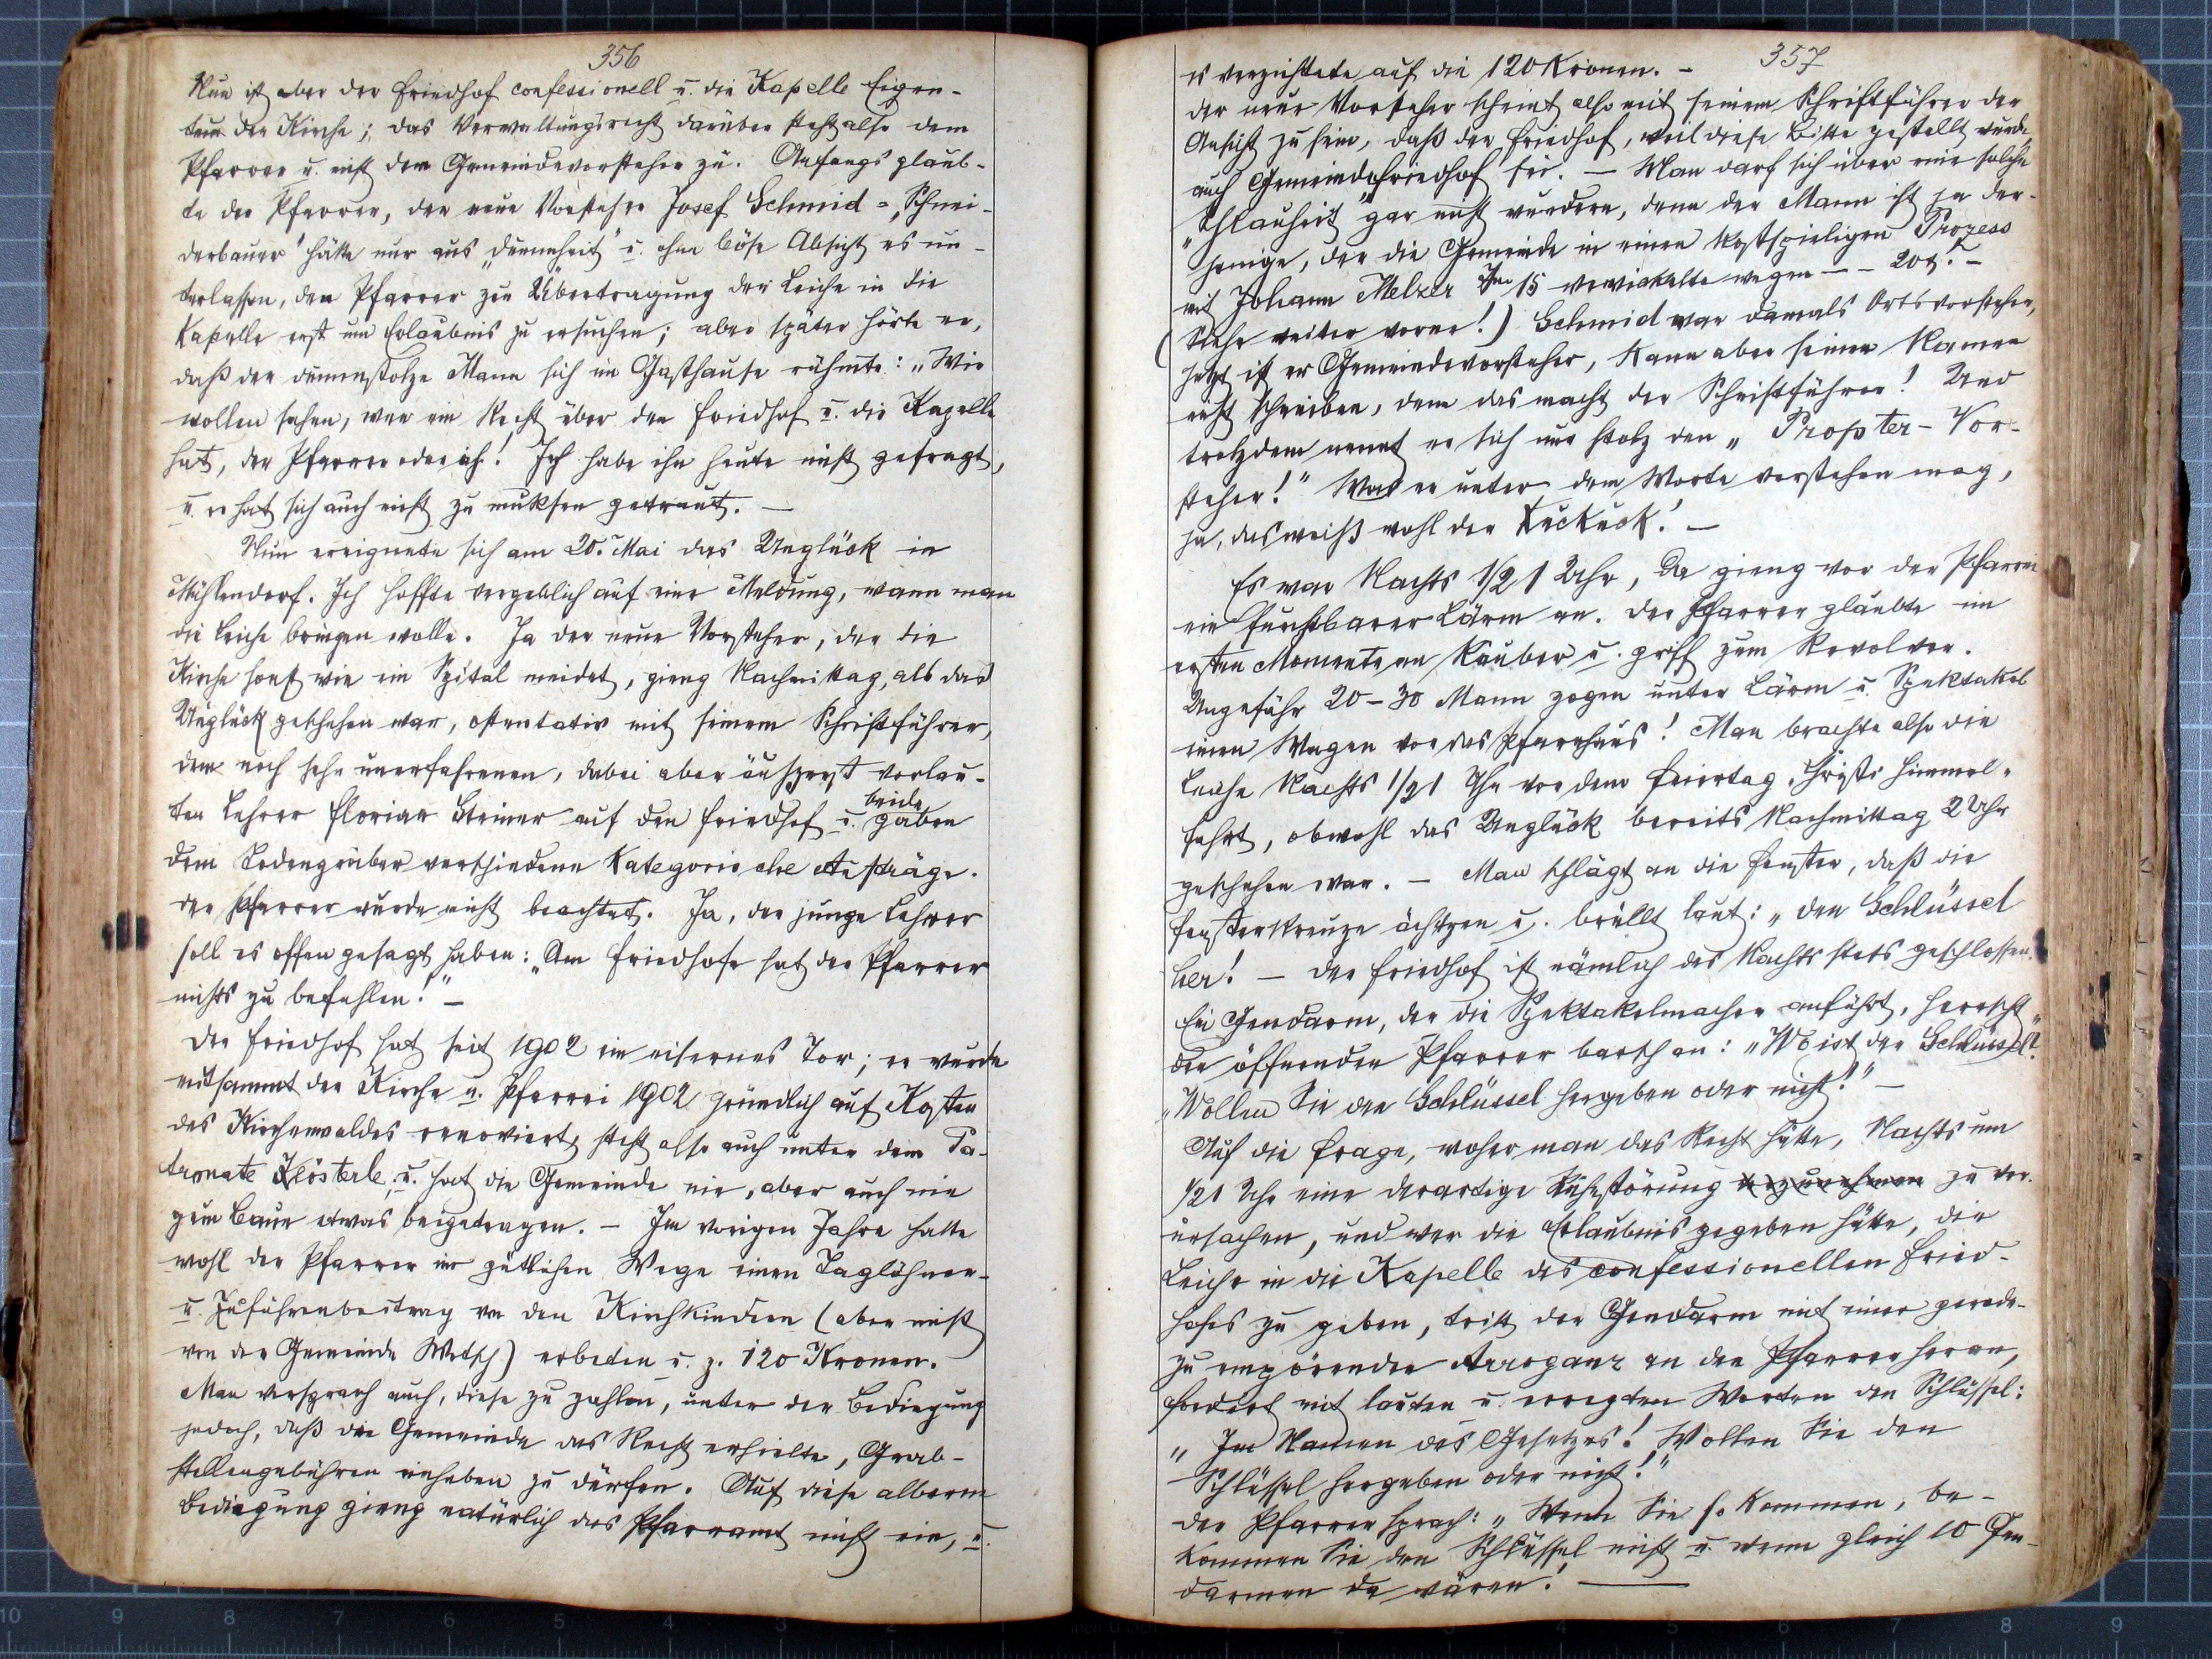 356
Nun ist aber der Friedhof confessionell u. die Kapelle Eigen-
tum der Kirche; das Verwaltungsrecht darüber steht also dem
Pfarrer u. nicht dem Gemeindevorsteher zu. Anfangs glaub-
te der Pfarrer, der neue Vorsteher Josef Schmid = "Schnei-
derbauer" hätte nur aus "Dummheit" u. ohne böse Absicht es un-
terlassen, den Pfarrer zur Übertragung der Leiche in die
Kapelle erst um Erlaubnis zu ersuchen; aber später hörte er,
daß der dummstolze Mann sich im Gasthause rühmte: „Wir
wollen sehen, wer ein Recht über den Friedhof u. die Kapelle
hat, der Pfarrer oder ich! Ich habe ihn heute nicht gefragt,
u. er hat sich auch nicht zu muksen getraut. —
Nun ereignete sich am 20. Mai das Unglück in
Mühlendorf. Ich hoffte vergeblich auf eine Meldung, wann man
die Leiche bringen wolle. Ja der neue Vorsteher, der die
Kirche sonst wie ein Spital meidet, gieng Nachmittag, als das
Unglück geschehen war, ostentativ mit seinem Schriftführer,
dem noch sehr unerfahrenen, dabei aber äußerst vorlau-
ten Lehrer Florian Steiner auf den Friedhof u. beide gaben
dem Todengräber verschiedene kategorische Aufträge.
Der Pfarrer wurde nicht beachtet. Ja, der junge Lehrer
soll es offen gesagt haben: „Am Friedhofe hat der Pfarrer
nichts zu befehlen!" —
Der Friedhof hat seit 1902 ein eisernes Tor; er wurde
mitsammt der Kirche u. Pfarrei 1902 gründlich auf Kosten
des Kirchenwaldes renoviert, steht also auch unter dem Pa-
tronate Klösterle, u. hat die Gemeinde nie, aber auch nie
zum Baue etwas beigetragen. — Im vorigen Jahre hatte
wohl der Pfarrer im gütlichen Wege einen Taglöhner-
u. Zufuhrenbeitrag von den Kirchkindern (aber nicht
von der Gemeinde Wotsch) erbeten u. z. 120 Kronen.
Man versprach auch, diese zu zahlen, unter der Bedingung
jedoch, daß die Gemeinde das Recht erhielte, Grab-
stellengebühren einheben zu dürfen. Auf diese alberne
Bedingung gieng natürlich das Pfarramt nicht ein, u.
357
es verzichtete auf die 120 Kronen. —
Der neue Vorsteher scheint also mit seinem Schriftführer der
Ansicht zu sein, daß der Friedhof, weil diese Bitte gestellt wurde,
auch Gemeindefriedhof sei. — Man darf sich über eine solche
"Schlauheit" gar nicht wundern, denn der Mann ist ja der-
jenige, der die Gemeinde in einen kostspieligen Prozess
mit Johann Melzer 15 verwickelte wegen — —
(Siehe weiter vorne!) Schmid war damals Ortsvorsteher,
jetzt ist er Gemeindevorsteher, kann aber seinen Namen
nicht schreiben, denn das macht der Schriftführer! Und
trotzdem nennt er sich nur stolz den „Propter-Vor-
steher!" Was er unter dem Worte verstehen mag,
ja, das weiß wohl der Kuckuck! —
Es war Nachts 1/2 1 Uhr, da gieng vor der Pfarrei
ein furchtbarer Lärm an. Der Pfarrer glaubte im
ersten Momente an Räuber u. griff zum Revolver.
Ungefähr 20-30 Mann zogen unter Lärm u. Spektakel
einen Wagen vor das Pfarrhaus! Man brachte also die
Leiche Nachts 1/2 1 Uhr vor dem Feiertag, Christi Himmel-
fahrt, obwohl das Unglück bereits Nachmittag 2 Uhr
geschehen war. — Man schlägt an die Fenster, daß die
Fensterkreuze ächtzen u. brüllt laut: „Den Schlüssel
her! — Der Friedhof ist nämlich des Nachts stets geschlossen.
Ein Gendarm, der die Spektakelmacher anführt, herrscht
den öffnenden Pfarrer barsch an: „Wo ist der Schlüssel?"
„Wollen Sie den Schlüssel hergeben oder nicht!" —
Auf die Frage, woher man das Recht hätte, Nachts um
1/2 1 Uhr eine derartige Ruhestörung zu ver-
ursachen, und wer die Erlaubnis gegeben hätte, die
Leiche in die Kapelle des confessionellen Fried-
hofes zu geben, tritt der Gendarm mit einer gerade-
zu empörenden Arroganz an den Pfarrer heran,
fordert mit lauten u. erregten Worten den Schlüssel:
„Im Namen des Gesetzes! Wollen Sie den
Schlüssel hergeben oder nicht!"
Der Pfarrer sprach: „Wenn Sie so kommen, be-
kommen Sie den Schlüssel nicht u. wenn gleich 10 Gen-
darmen da wären! —